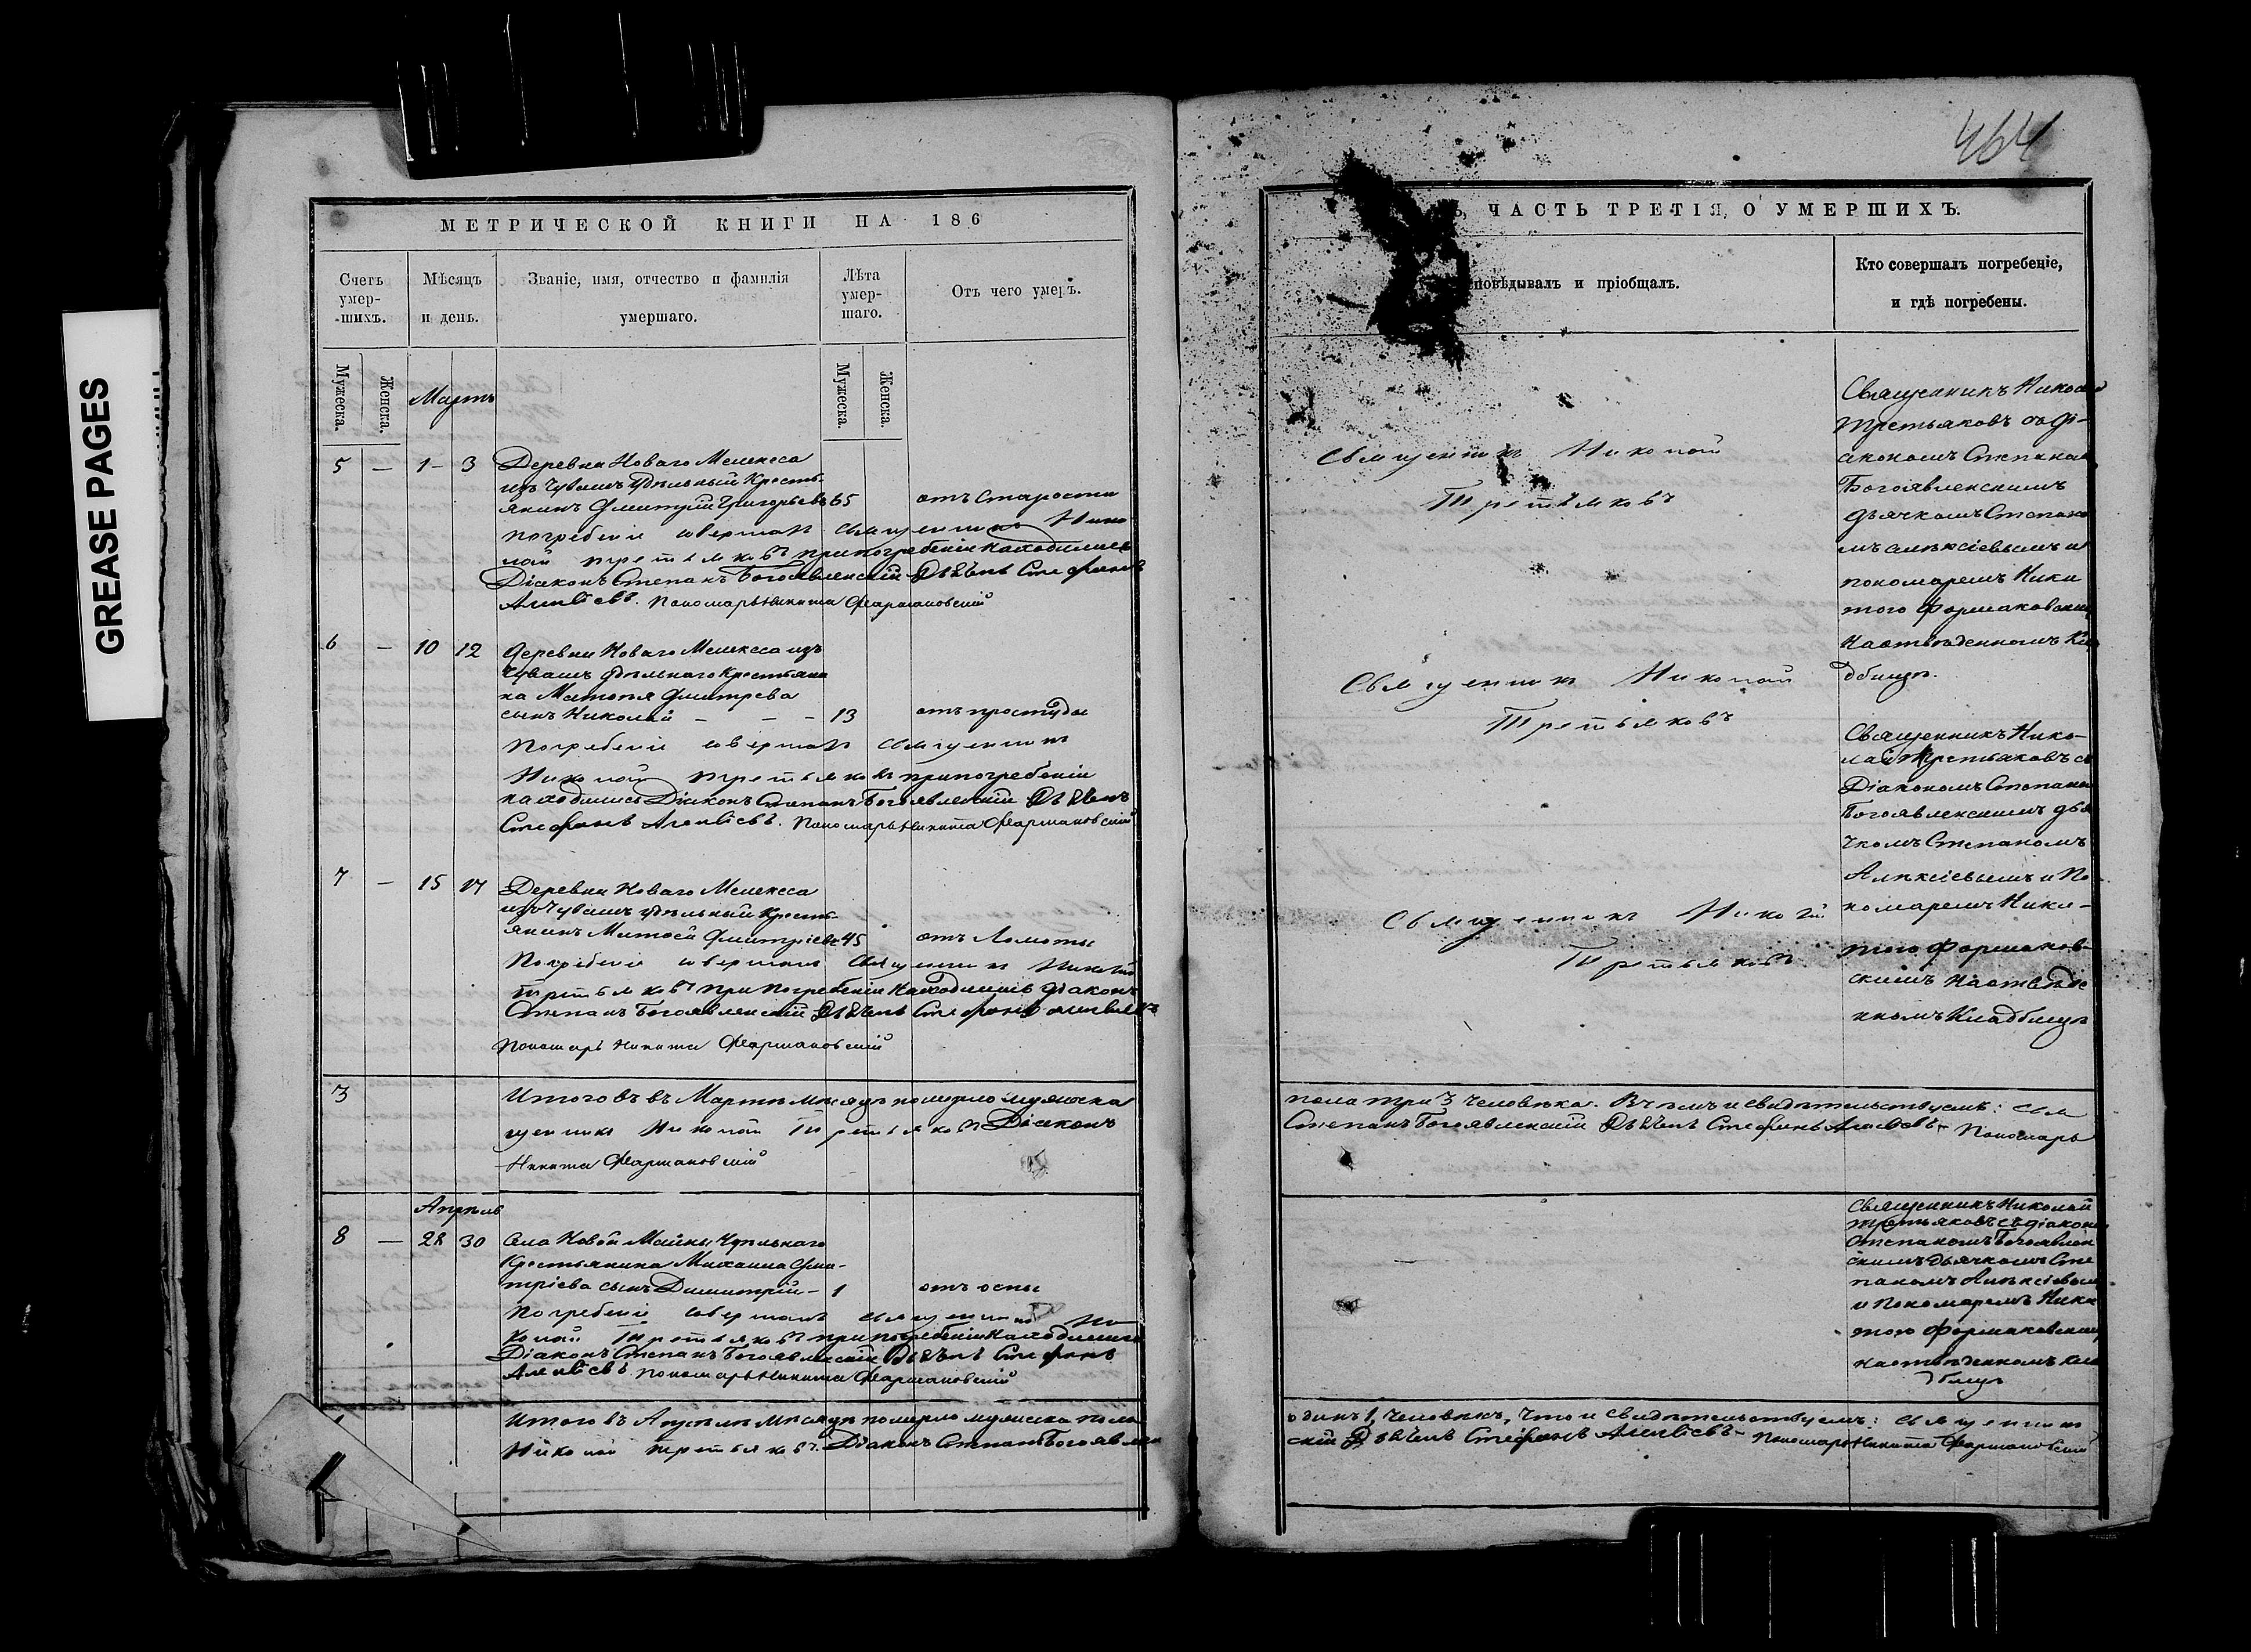 GREASE PAGES
МЕТРИЧЕСКОЙ КНИГИ НА 186
Счетъ умер-шихъ.
Мѣсяцъ и день.
Званіе, имя, отчество и фамилія умершаго.
Лѣта умер-шаго.
Отъ чего умеръ.
Мужеска.
Женска.
Мужеска.
Женска.
Мартъ
5 — 1 - 3 Деревни Новаго Мелекеса
изъ Чувашъ удѣльный Кресть-
янинъ Дмитрій Григорьевъ 65 отъ Старости
погребеніе совершалъ священникъ Нико
лай Третьяковъ при погребеніи находились
Діаконъ Степанъ Богоявленскій Дьячекъ Стефанъ
Алексіевъ. Пономарь Никита Фармаковскій
6 — 10 12 Деревни Новаго Мелекеса изъ
Чувашъ удѣльнаго Крестьяни
на Матвѣя Дмитрева
сынъ Николай - - - 13 отъ простуды
Погребеніе совершалъ священникъ
Николай Третьяковъ при погребеніи
находились Діаконъ Степанъ Богоявленскій Дьячекъ
Стефанъ Алексіевъ. Пономарь Никита Фармаковскій
7 — 15 17 Деревни Новаго Мелекеса
изъ Чувашъ удѣльный Кресть-
янинъ Матвей Дмитріевъ 45 отъ Ломоты
Погребеніе совершалъ священникъ Николай
Третьяковъ при Погребеніи Находились Діаконъ
Степанъ Богоявленскій Дьячекъ Стефанъ Алексіевъ
Пономарь Никита Фармаковскій
3 Итого въ Мартѣ мѣсяцѣ померло мужеска
щенникъ Николай Третьяковъ Діаконъ
Никита Фармаковскій
Апрѣль
8 — 28 30 Села Новой Майны Удѣльнаго
Крестьянина Михаила Дми-
тріева сынъ Димитрій - 1 отъ оспы
Погребеніе совершалъ священникъ Ни
колай Третьяковъ при погребеніи Находились
Діаконъ Степанъ Богоявленскій Дьячекъ Стефанъ
Алексіевъ. Пономарь Никита Фармаковскій
Итого въ Апрѣлѣ мѣсяцѣ померло мужеска пола
Николай Третьяковъ. Діаконъ Степанъ Богоявлен
464
ЧАСТЬ ТРЕТІЯ, О УМЕРШИХЪ.
повѣдывалъ и пріобщалъ.
Кто совершалъ погребеніе, и гдѣ погребены.
Священникъ Николай
Третьяковъ
Священникъ Николай
Третьяковъ
Священникъ Николай
Третьяковъ.
Священникъ Николай
Третьяковъ съ Ді-
акономъ Степаном
Богоявленскимъ
дьячкомъ Степано
мъ Алексіевымъ и
пономаремъ Ники
тою Формаковским
На отведенномъ Кла
дбищѣ.
Священникъ Нико-
лай Третьяковъ съ
Діакономъ Степаном
Богоявленскимъ дья
чкомъ Степаномъ
Алексіевымъ и По-
номаремъ Ники-
тою Формаков-
скимъ На отведе
нномъ Кладбищѣ
пола три 3 человѣка. Въ чемъ и свидѣтельствуемъ: свя
Степанъ Богоявленскій Дьячекъ Стефанъ Алексіевъ - Пономарь
Священникъ Николай
Третьяковъ съ діаконом
Степаномъ Богоявлен
скимъ дьячкомъ Сте
паномъ Алексіевым
и Пономаремъ Ники
тою Формаковским
на отведенномъ кла
дбищѣ
одинъ 1, человѣкъ, Что и свидѣтельствуемъ: священникъ
скій Дьячекъ Стефанъ Алексіевъ - Пономарь Никита Фармаковскій